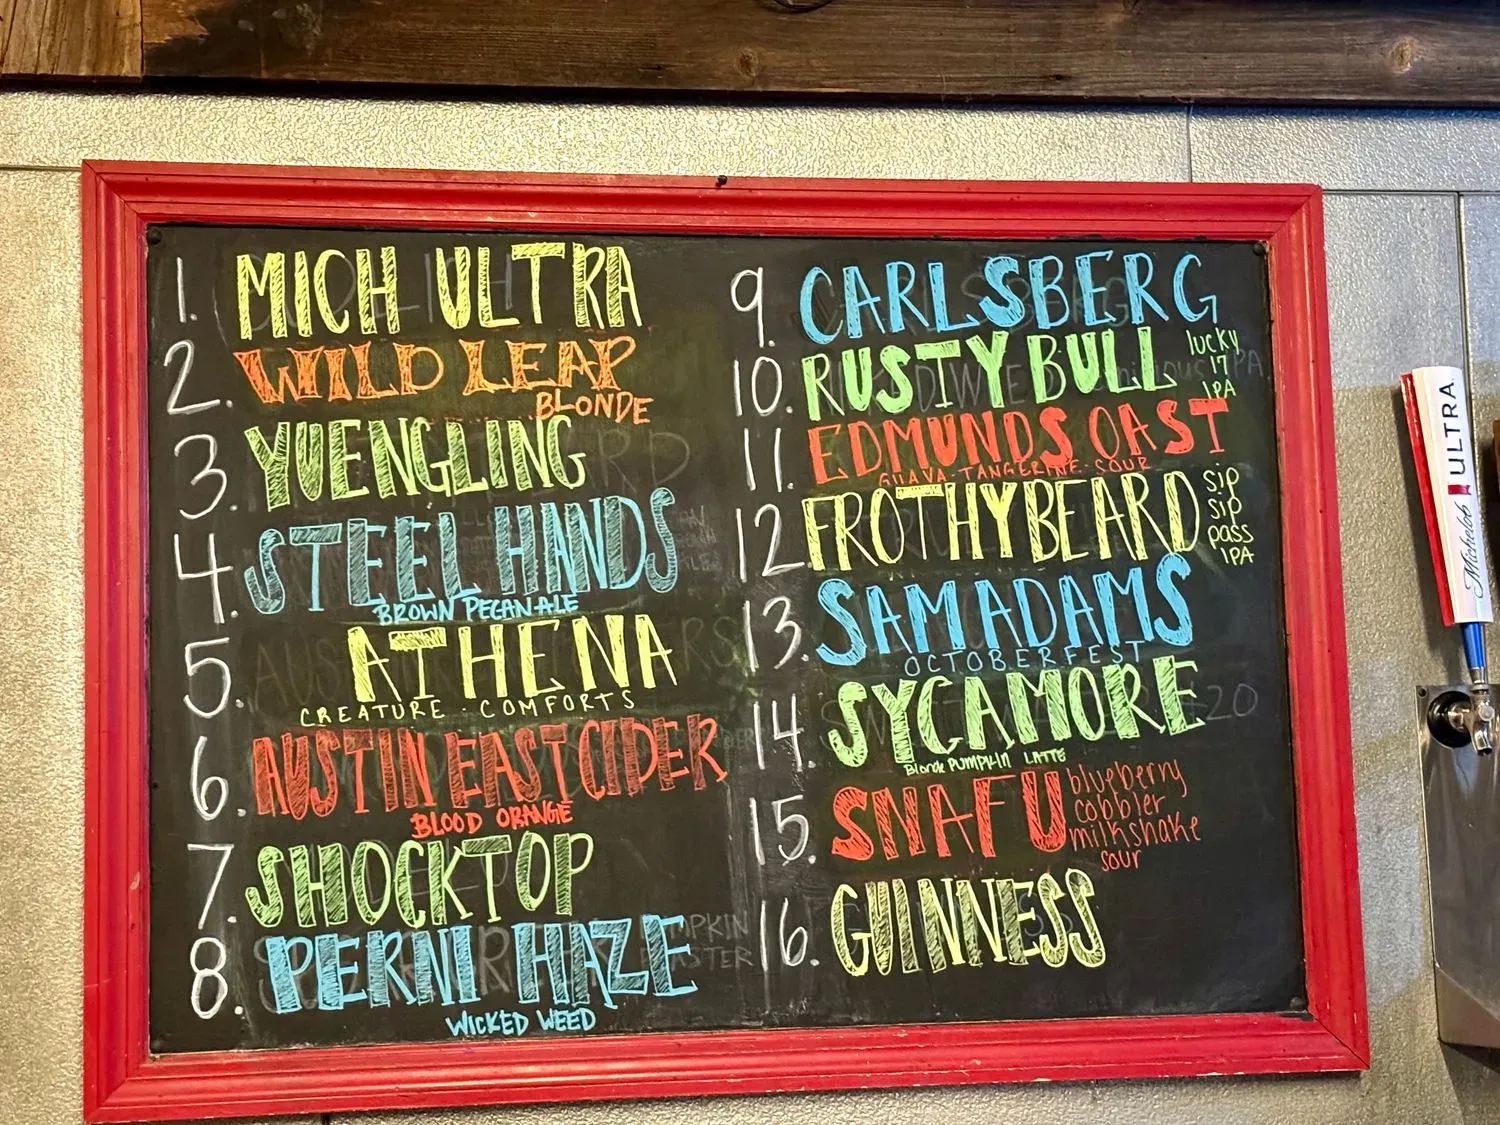 1. MICH ULTRA
2. WILD LEAP
BLONDE
3. YUENGLING
4. STEEL HANDS
BROWN PECAN ALE
5. ATHENA
CREATURE · COMFORTS
6. AUSTIN EAST CIDER
BLOOD ORANGE
7. SHOCKTOP
8. PERNI HAZE
WICKED WEED
9. CARLSBERG
10. RUSTY BULL
lucky
17
IPA
11. EDMUNDS OAST
GUAVA · TANGERINE · SOUR
12. FROTHYBEARD
sip
sip
pass
IPA
13. SAM ADAMS
OCTOBERFEST
14. SYCAMORE
Blonde PUMPKIN LATTE
15. SNAFU
blueberry
cobbler
milkshake
sour
16. GUINNESS
Michelob ULTRA